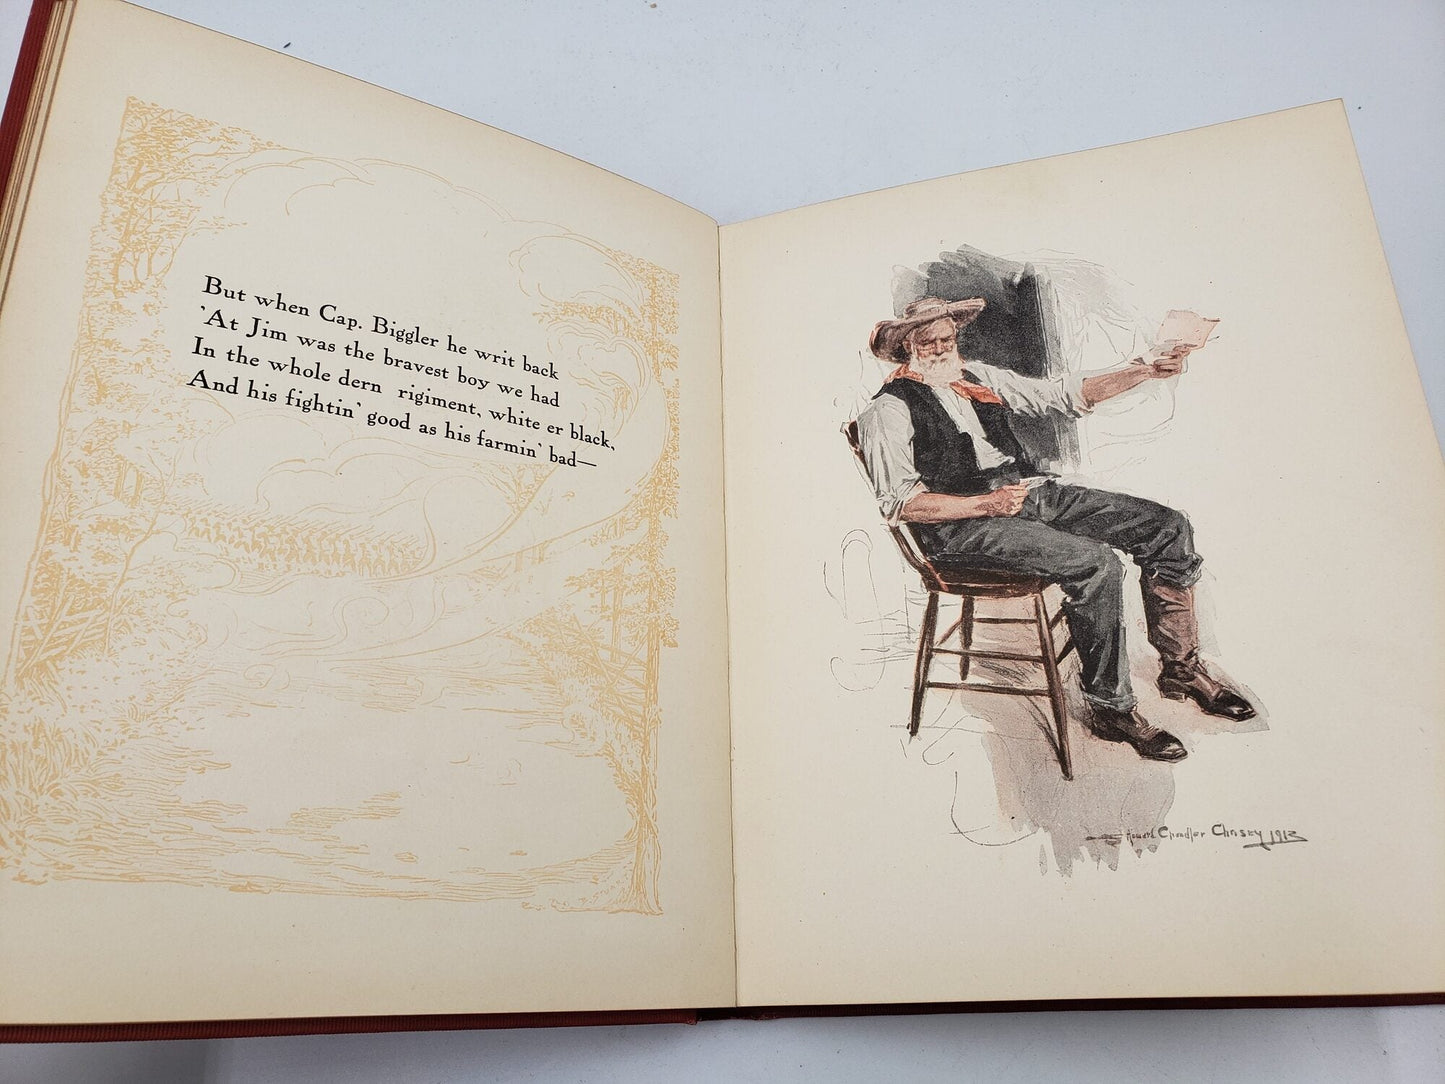 But when Cap. Biggler he writ back
'At Jim was the bravest boy we had
In the whole dern rigiment, white er black,
And his fightin' good as his farmin' bad—
Howard Chandler Christy 1913